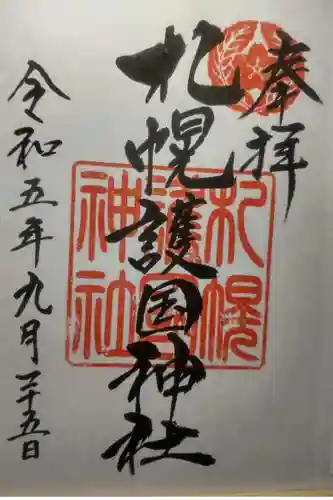 奉拝
札幌護國神社
札幌護國神社
令和五年九月二十五日